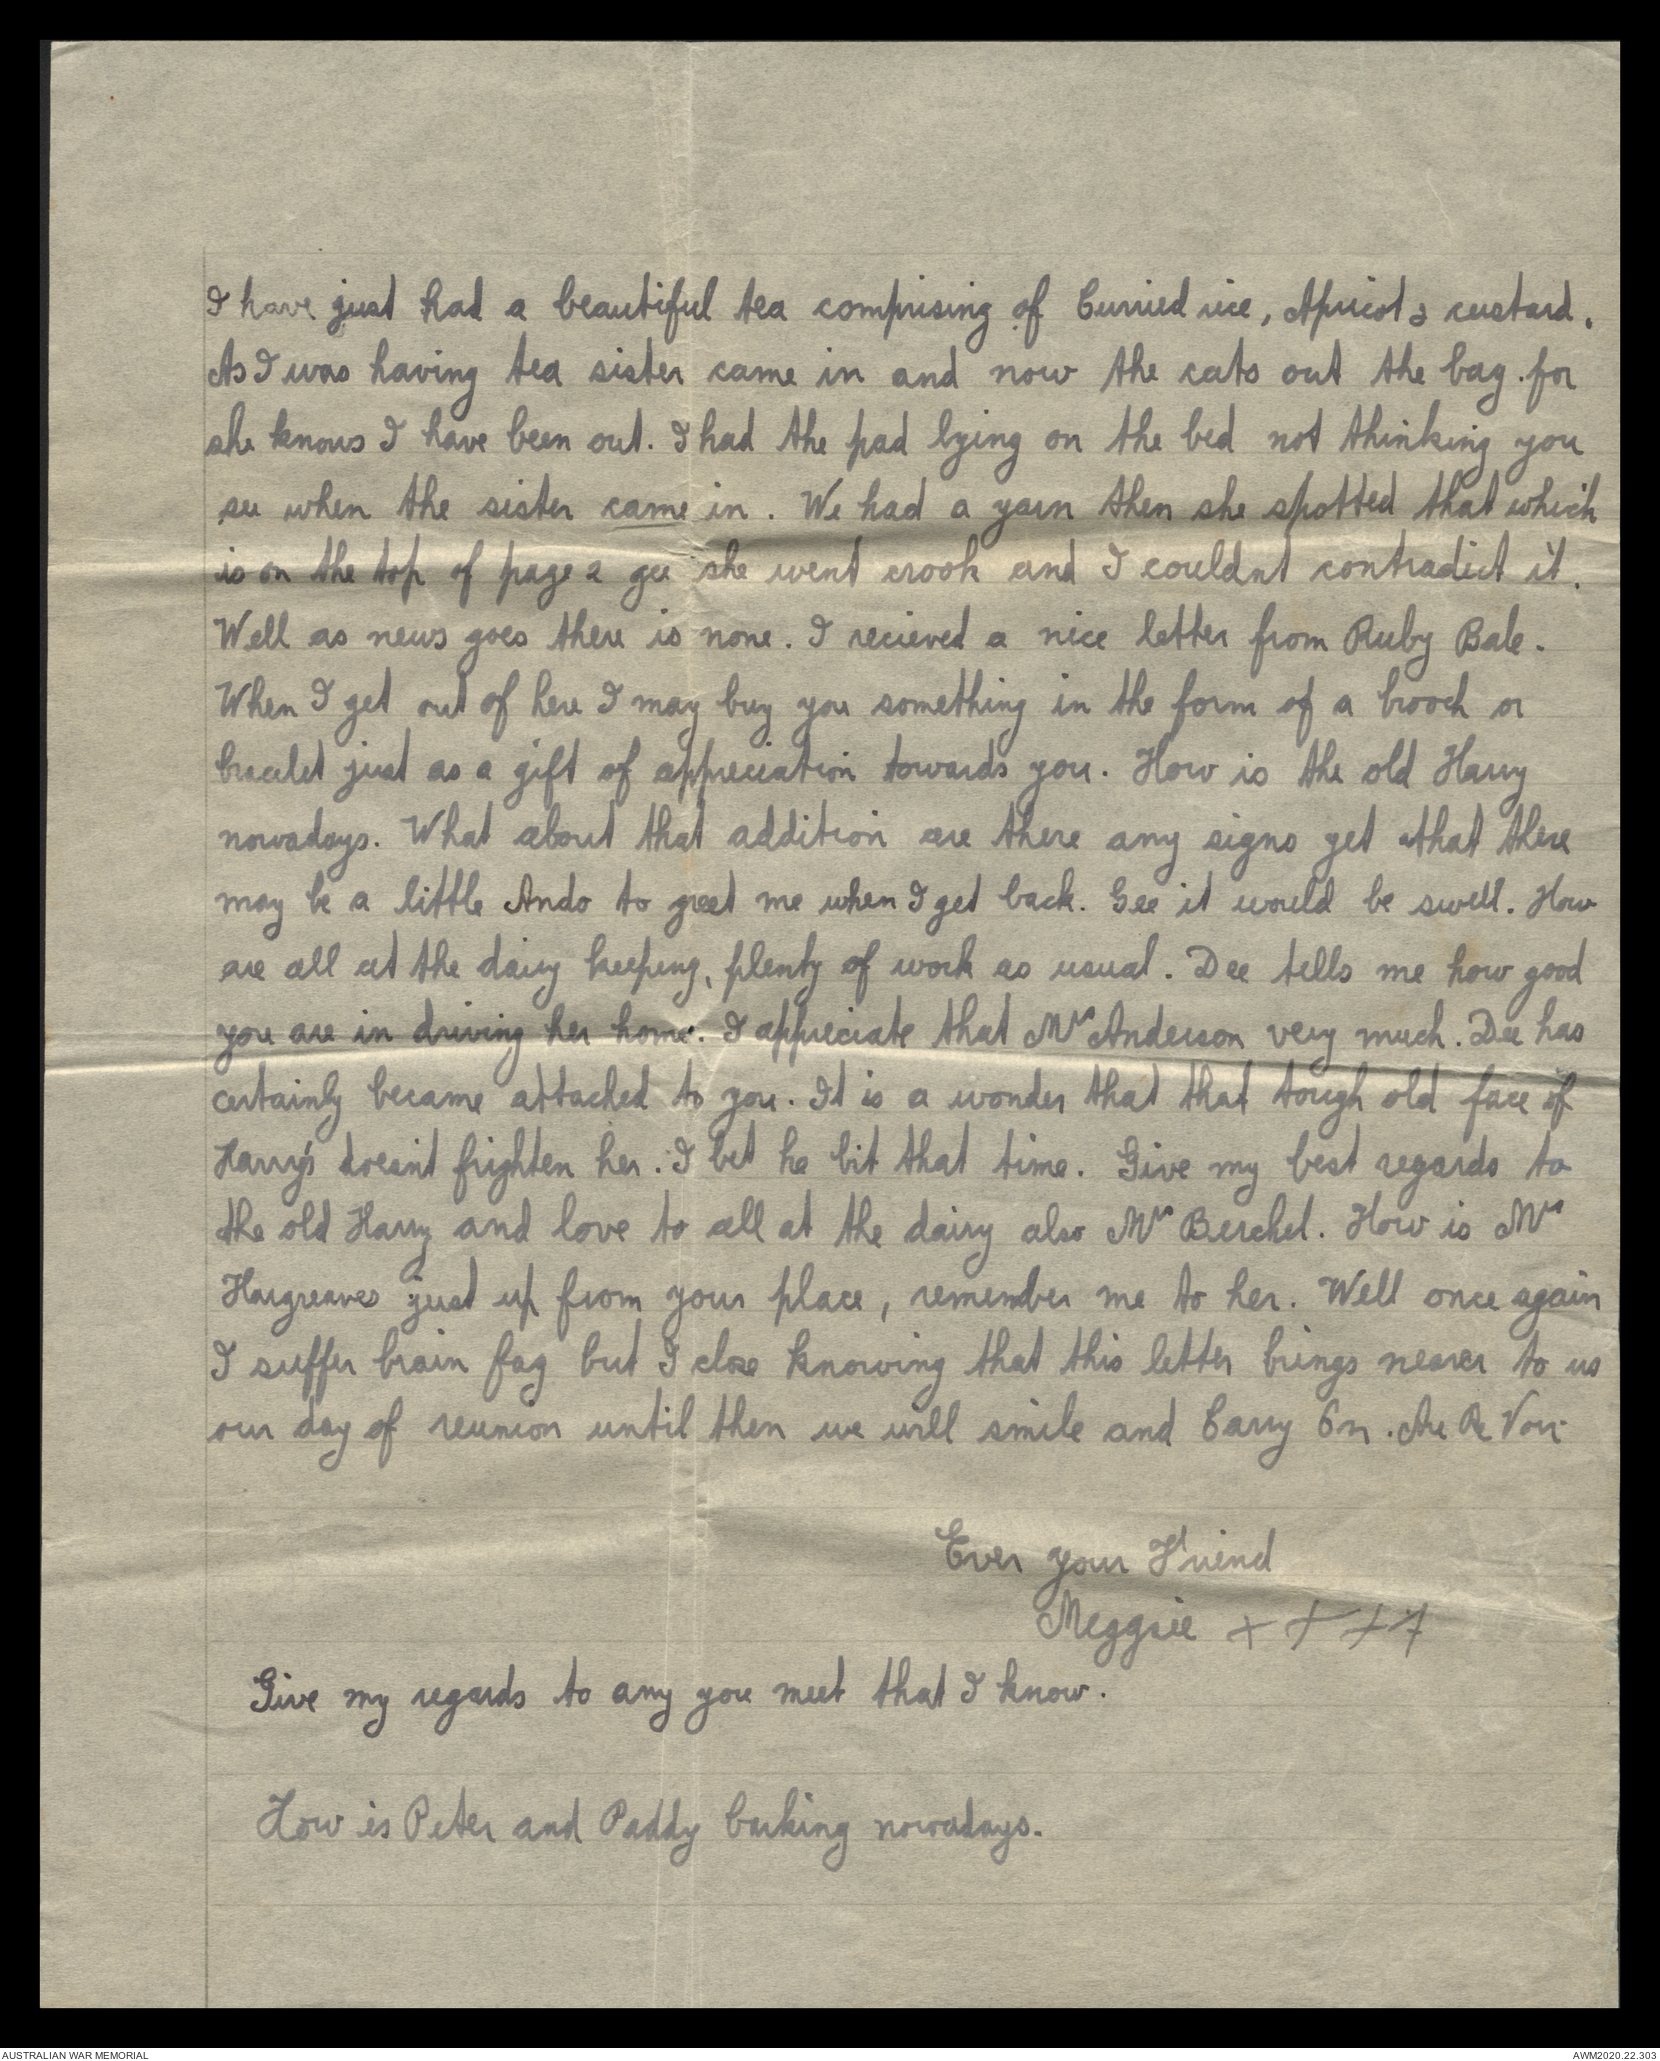 I have just had a beautiful tea comprising of Curried rice, Apricot & custard.
As I was having tea sister came in and now the cats out the bag. for
she knows I have been out. I had the pad lying on the bed not thinking you
see when the sister came in. We had a yarn then she spotted that which
is on the top of page 2 gee she went crook and I couldnt contradict it.
Well as news goes there is none. I recieved a nice letter from Ruby Bale.
When I get out of here I may buy you something in the form of a brooch or
bracelet just as a gift of appreciation towards you. How is the old Harry
nowadays. What about that addition are there any signs yet that there
may be a little Ando to greet me when I get back. Gee it would be swell. How
are all at the dairy keeping, plenty of work as usual. Dee tells me how good
you are in driving her home. I appreciate that Mrs Anderson very much. Dee has
certainly became attached to you. It is a wonder that that tough old face of
Harry's doesnt frighten her. I bet he bit that time. Give my best regards to
the old Harry and love to all at the dairy also Mrs Berchel. How is Mrs
Hargreaves just up from your place, remember me to her. Well once again
I suffer brain fag but I close knowing that this letter brings nearer to us
our day of reunion until then we will smile and Carry On. Au Re Voir
Ever your Friend
Meggsie ++++
Give my regards to any you meet that I know.
How is Peter and Paddy barking nowadays.
AUSTRALIAN WAR MEMORIAL
AWM2020.22.303